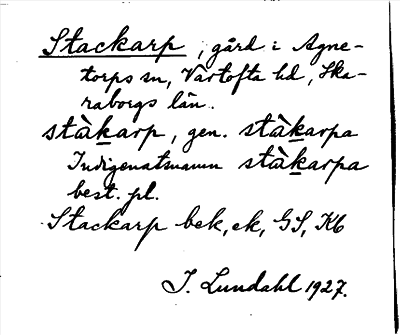 Stackarp, gård i Agne-
torps sn, Vartofta hd, Ska-
raborgs län.
stàkarp, gen. stàkarpa
Indigenatsnamn stàkarpa
best. pl.
Stackarp bek, ek, GS, Kb
I. Lundahl 1927.